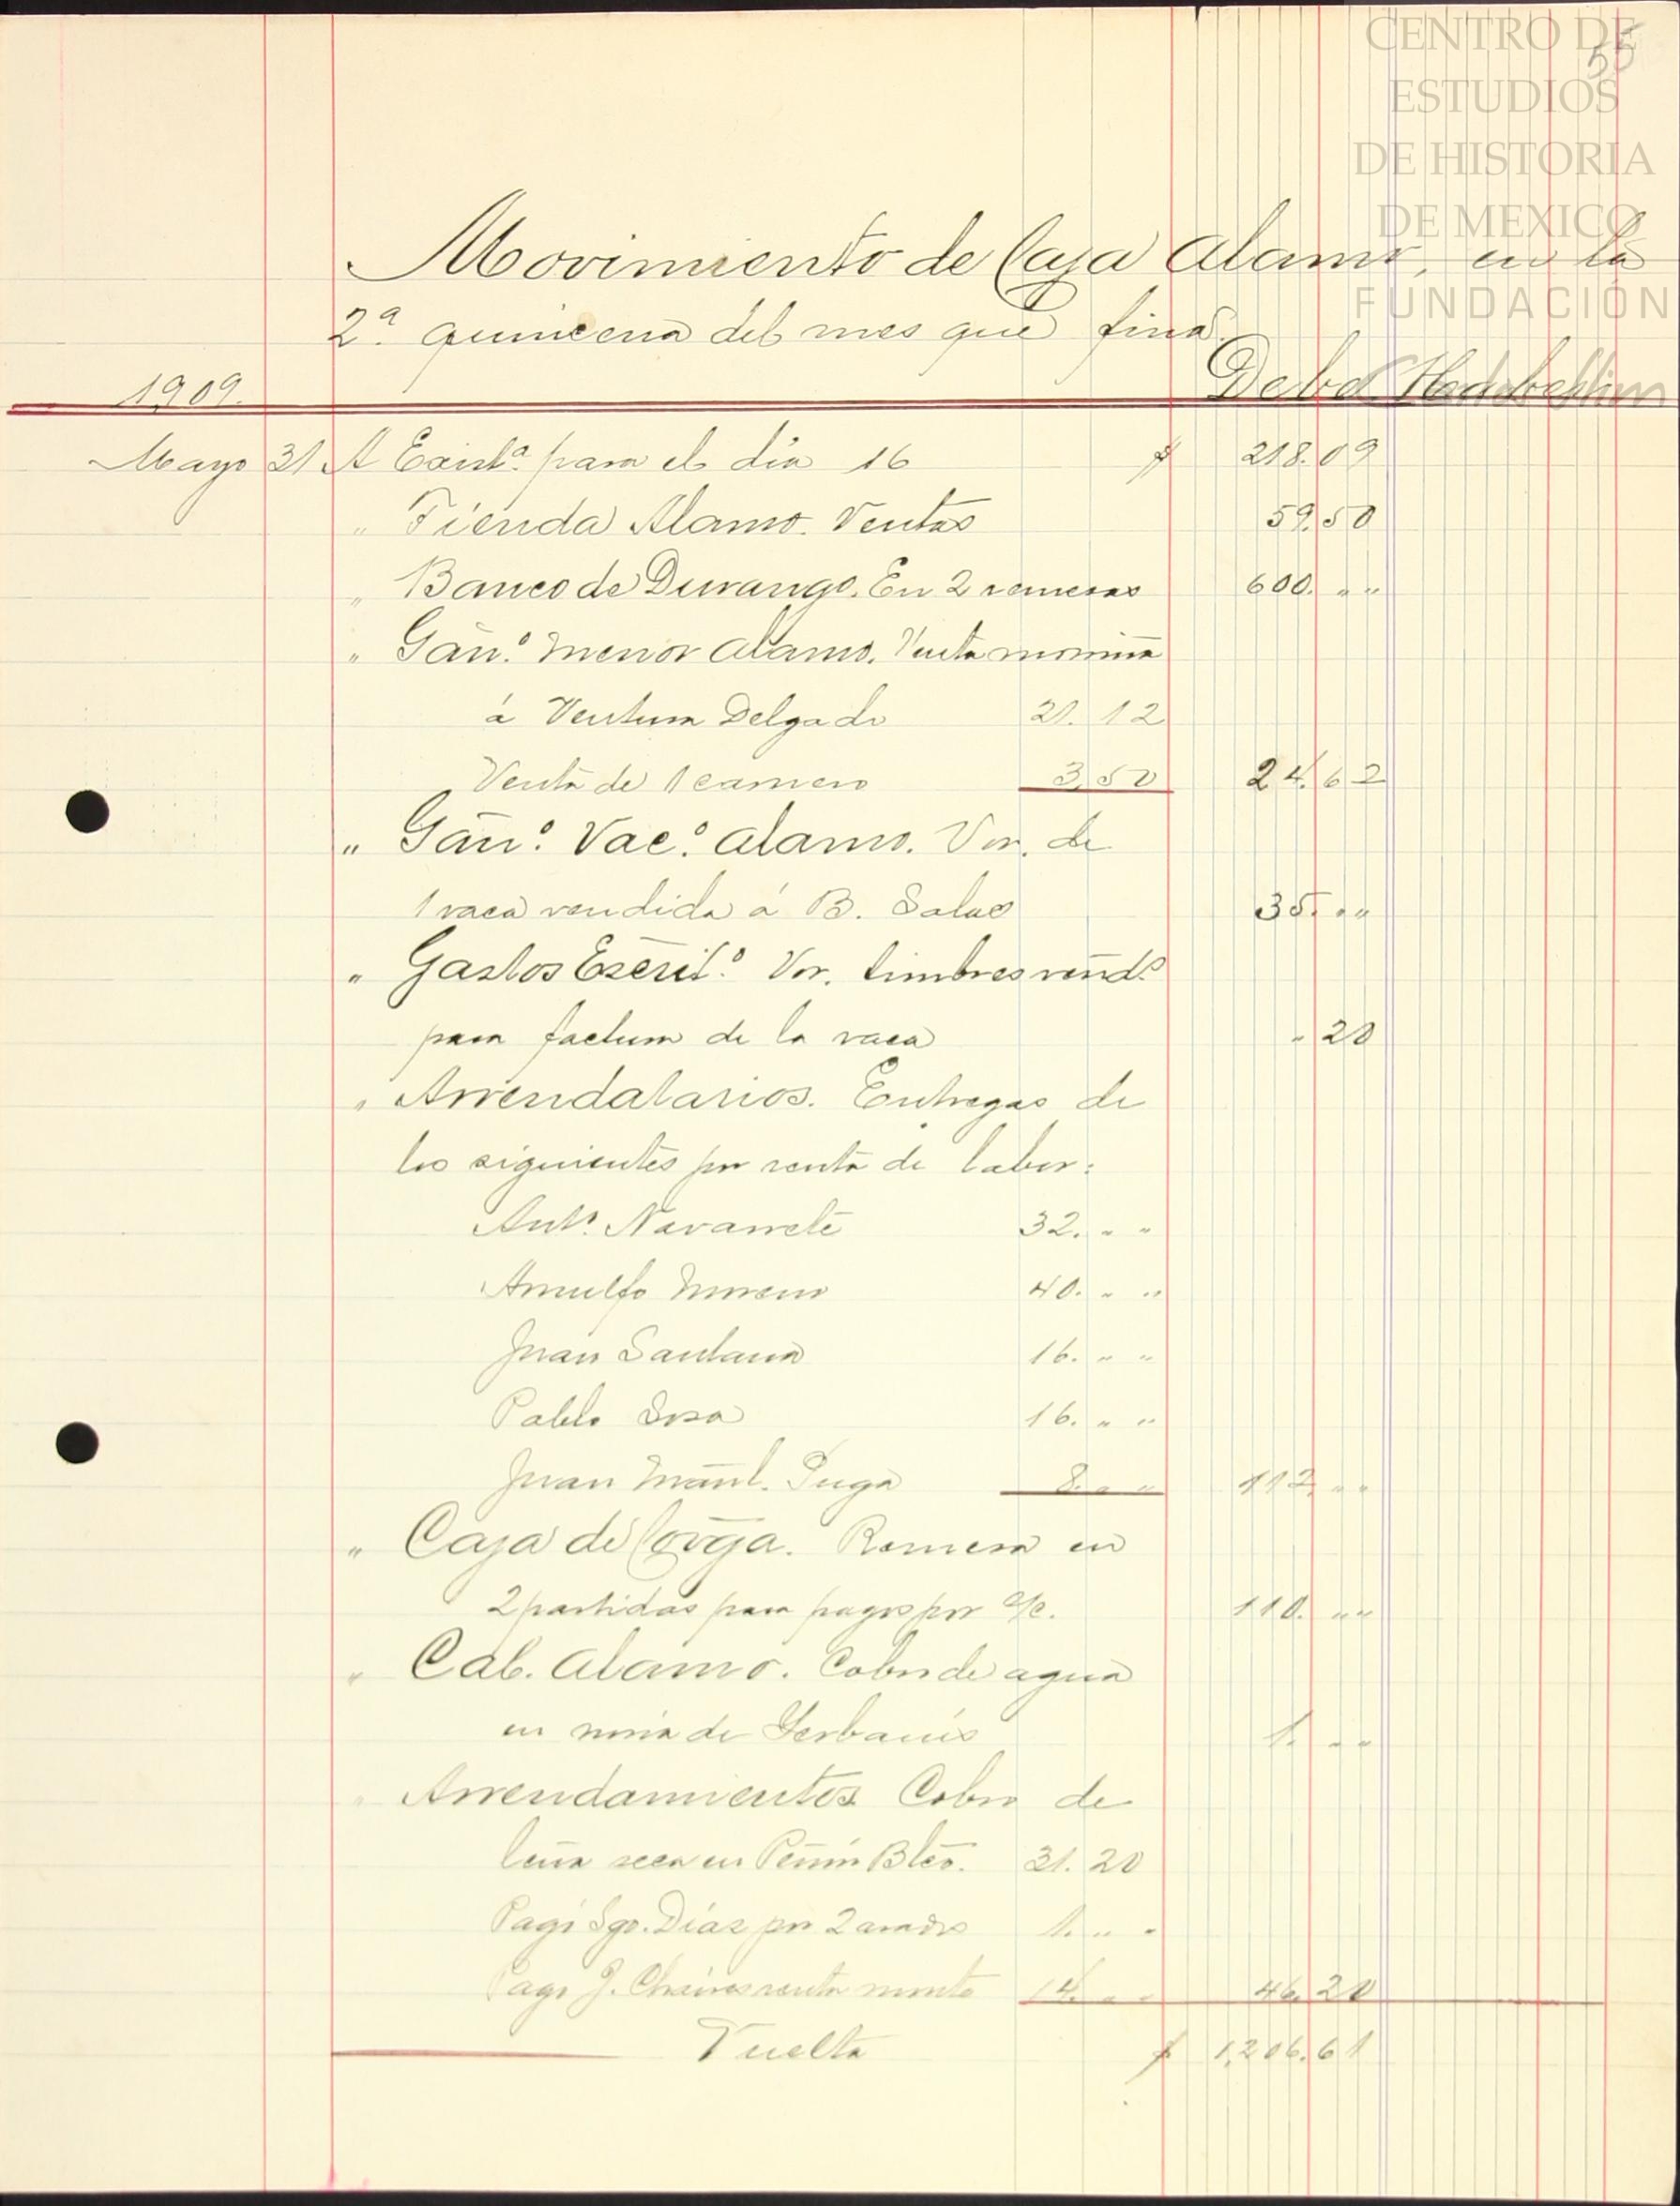 55
CENTRO DE
ESTUDIOS
DE HISTORIA
DE MEXICO
FUNDACIÓN
Movimiento de Caja Alamo, en la
2ª quincena del mes que fina.
1909. Debe
Mayo 31 A Existª para el dia 16 $ 218.09
" Tienda Alamo. Ventas 59.50
" Banco de Durango. En 2 remesas 600. " "
" Gan̄º menor Alamo. Venta
á Ventura Delgado 21.12
Venta de 1 carnero 3.50 24.62
" Gan̄º Vacº Alamo. Vor. de
1 vaca vendida á B. Salas 35. " "
" Gastos Escritº Vor. timbres vendº
para factura de la vaca " 20
" Arrendatarios. Entregas de
los siguientes por renta de labor:
Antº Navarrete 32. " "
Arnulfo Moreno 40. " "
Juan Santana 16. " "
Pablo Sosa 16. " "
Juan Manl. Puga 8. " " 112. " "
" Caja de Covja. Remesa en
2 partidas para pagos por o/c. 110. " "
" Cab. Alamo. Cobro de agua
en noria de Yerbanis 1. " "
" Arrendamientos Cobro de
leña seca en Peñon Blco. 31.20
Pagó Sgo. Días por 2 1. " "
Pago J. Cháires renta monte 14. " " 46.20
Vuelta $ 1,206.61